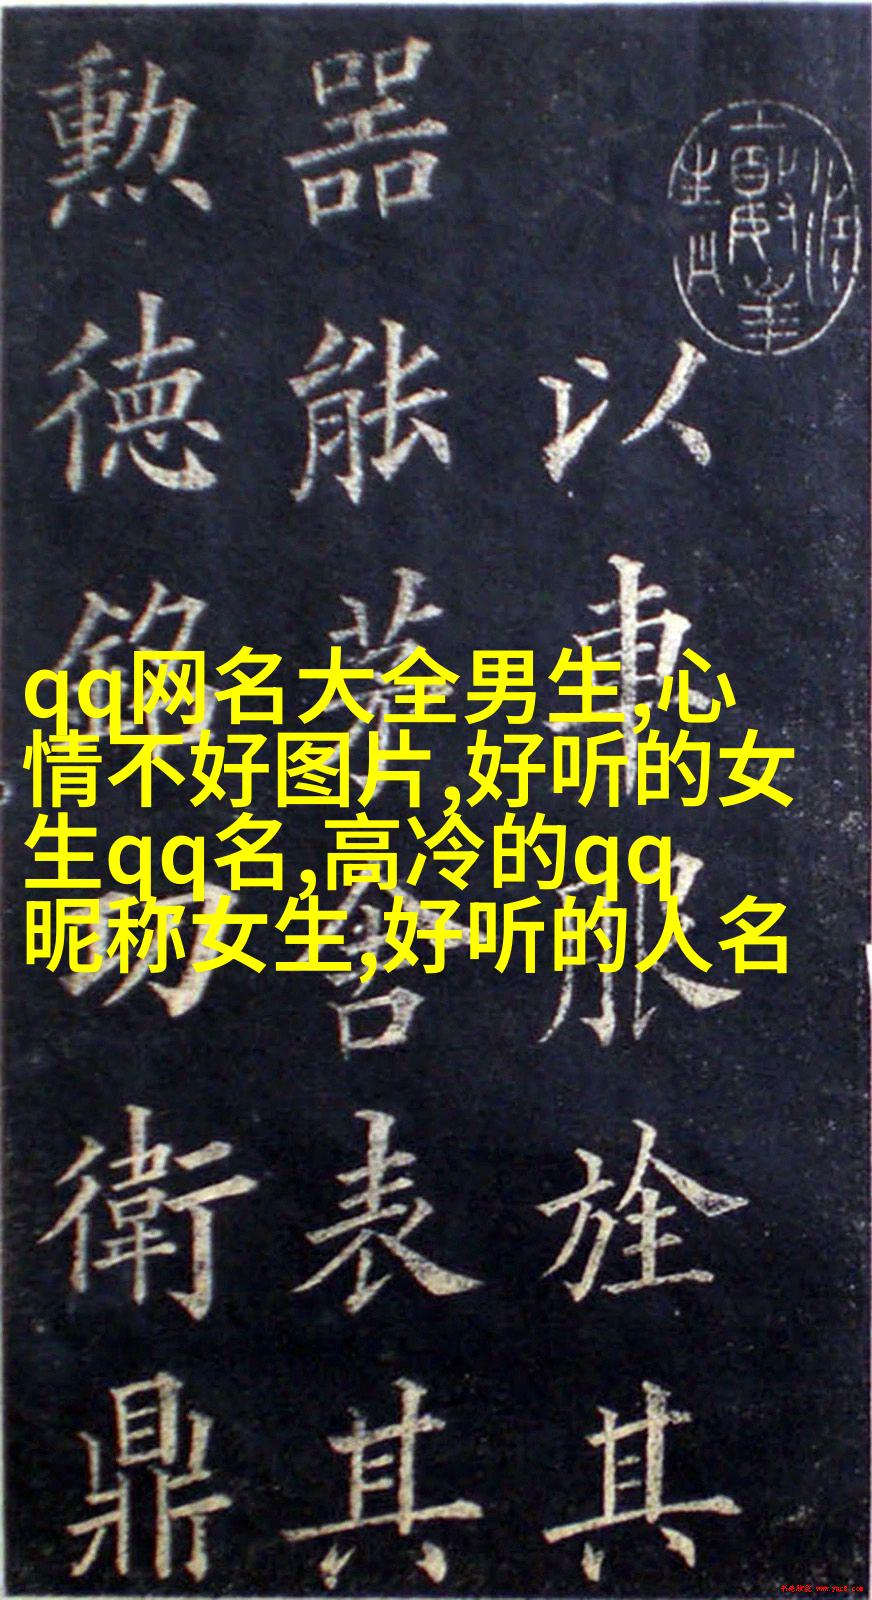 以車服旌其
器能蓍智表其
勲德銘功衛鼎
qq网名大全男生,心
情不好图片,好听的女
生qq名,高冷的qq
昵称女生,好听的人名